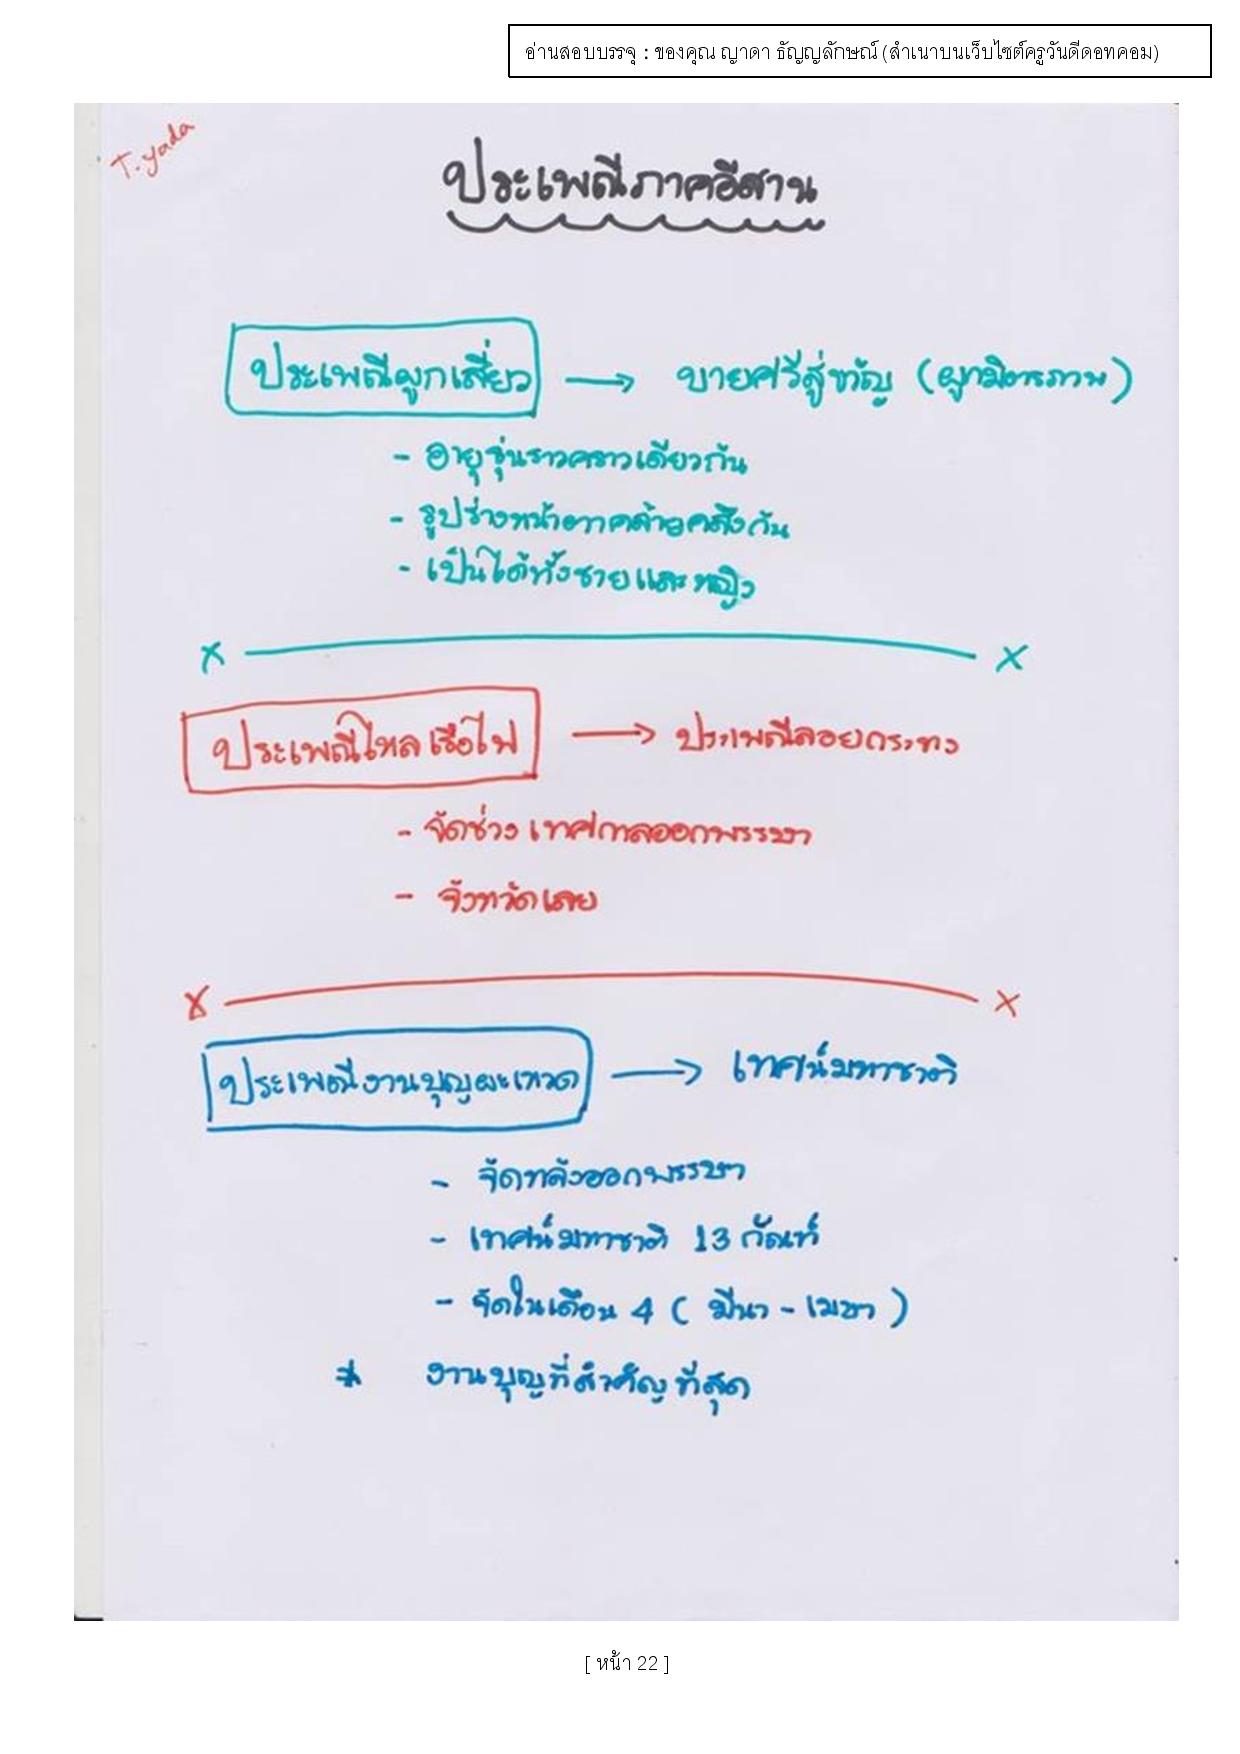 อ่านสอบบรรจุ : ของคุณ ญาดา ธัญญลักษณ์ (สำเนาบนเว็บไซต์ครูวันดีดอทคอม)
T.yada
ประเพณีภาคอีสาน
ประเพณีผูกเสี่ยว → บายศรีสู่ขวัญ (ผูกมิตรภาพ)
- อายุรุ่นราวคราวเดียวกัน
- รูปร่างหน้าตาคล้ายคลึงกัน
- เป็นได้ทั้งชายและหญิง
x x
ประเพณีไหลเรือไฟ → ประเพณีลอยกระทง
- จัดช่วงเทศกาลออกพรรษา
- จังหวัดเลย
x x
ประเพณีงานบุญผะเหวด → เทศน์มหาชาติ
- จัดหลังออกพรรษา
- เทศน์มหาชาติ 13 กัณฑ์
- จัดในเดือน 4 ( มีนา - เมษา )
* งานบุญที่สำคัญที่สุด
[ หน้า 22 ]